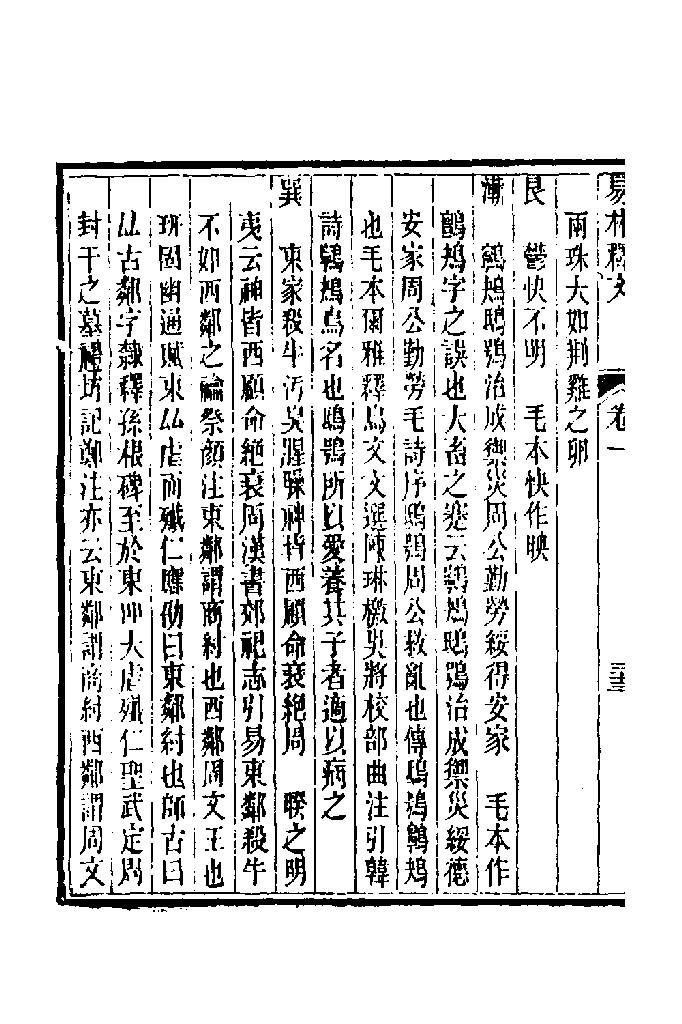 易林釋文 卷一 三
兩珠大如荆雞之卵
艮 鬱快不明 毛本快作映
漸 鸋鴂鴟鴞治成禦災周公勤勞綏得安家 毛本作
鸋鴂字之誤也大畜之蹇云鸋鴂鴟鴞治成禦災綏德
安家周公勤勞毛詩序鴟鴞周公救亂也傳鴟鴞鸋鴂
也毛本爾雅釋鳥文文選陳琳檄吳將校部曲注引韓
詩鸋鴂鳥名也鴟鴞所以愛養其子者適以病之
巽 東家殺牛汚臭腥臊神背西顧命衰絕周 暌之明
夷云神背西顧命絕衰周漢書郊祀志引易東鄰殺牛
不如西鄰之禴祭顔注東鄰謂商紂也西鄰周文王也
班固幽通賦東厸虐而殲仁應劭曰東鄰紂也師古曰
厸古鄰字隸釋孫根碑至於東大虐殲仁聖武定周
封干之墓禮坊記鄭注亦云東鄰謂商紂西鄰謂周文